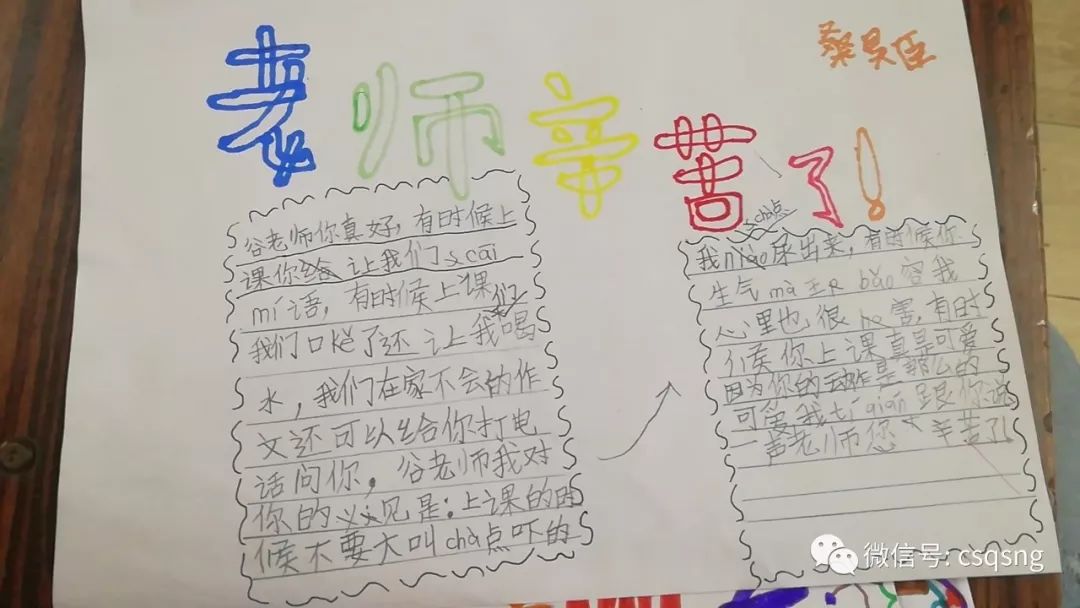 老师辛苦了!
蔡昊臣
谷老师你真好，有时候上
课你给 让我们 cāi
mí语，有时候上课
我们口渴了还让我们喝
水，我们在家不会的作
文还可以给你打电
话问你，谷老师我对
你的 见是：上课的时
候不要大叫chà点吓的
chà点
我niào尿出来，有时候你
生气 mà 王R bǎo 容我
心里也很 he 害，有时
候你上课真是可爱
因为你的动作是那么的
可爱我tí qián跟你说
一声老师您 辛苦了!
微信号: csqsng